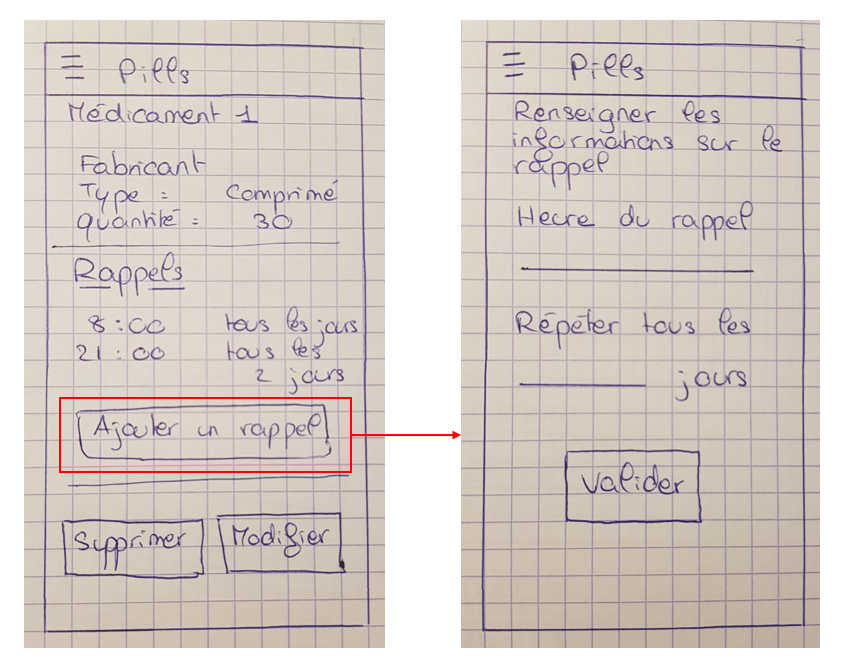 Pills
Médicament 1
Fabricant
Type : Comprimé
quantité : 30
Rappels
8:00 tous les jours
21:00 tous les
2 jours
Ajouter un rappel
Supprimer
Modifier
Pills
Renseigner les
informations sur le
rappel
Heure du rappel
Répéter tous les
jours
Valider